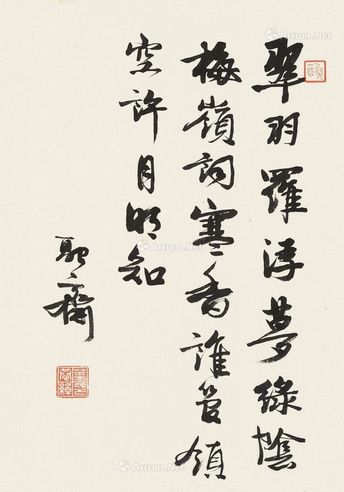 翠羽羅浮夢綠陰
梅嶺詞寒香誰管領
空許月明知
Artron.Net